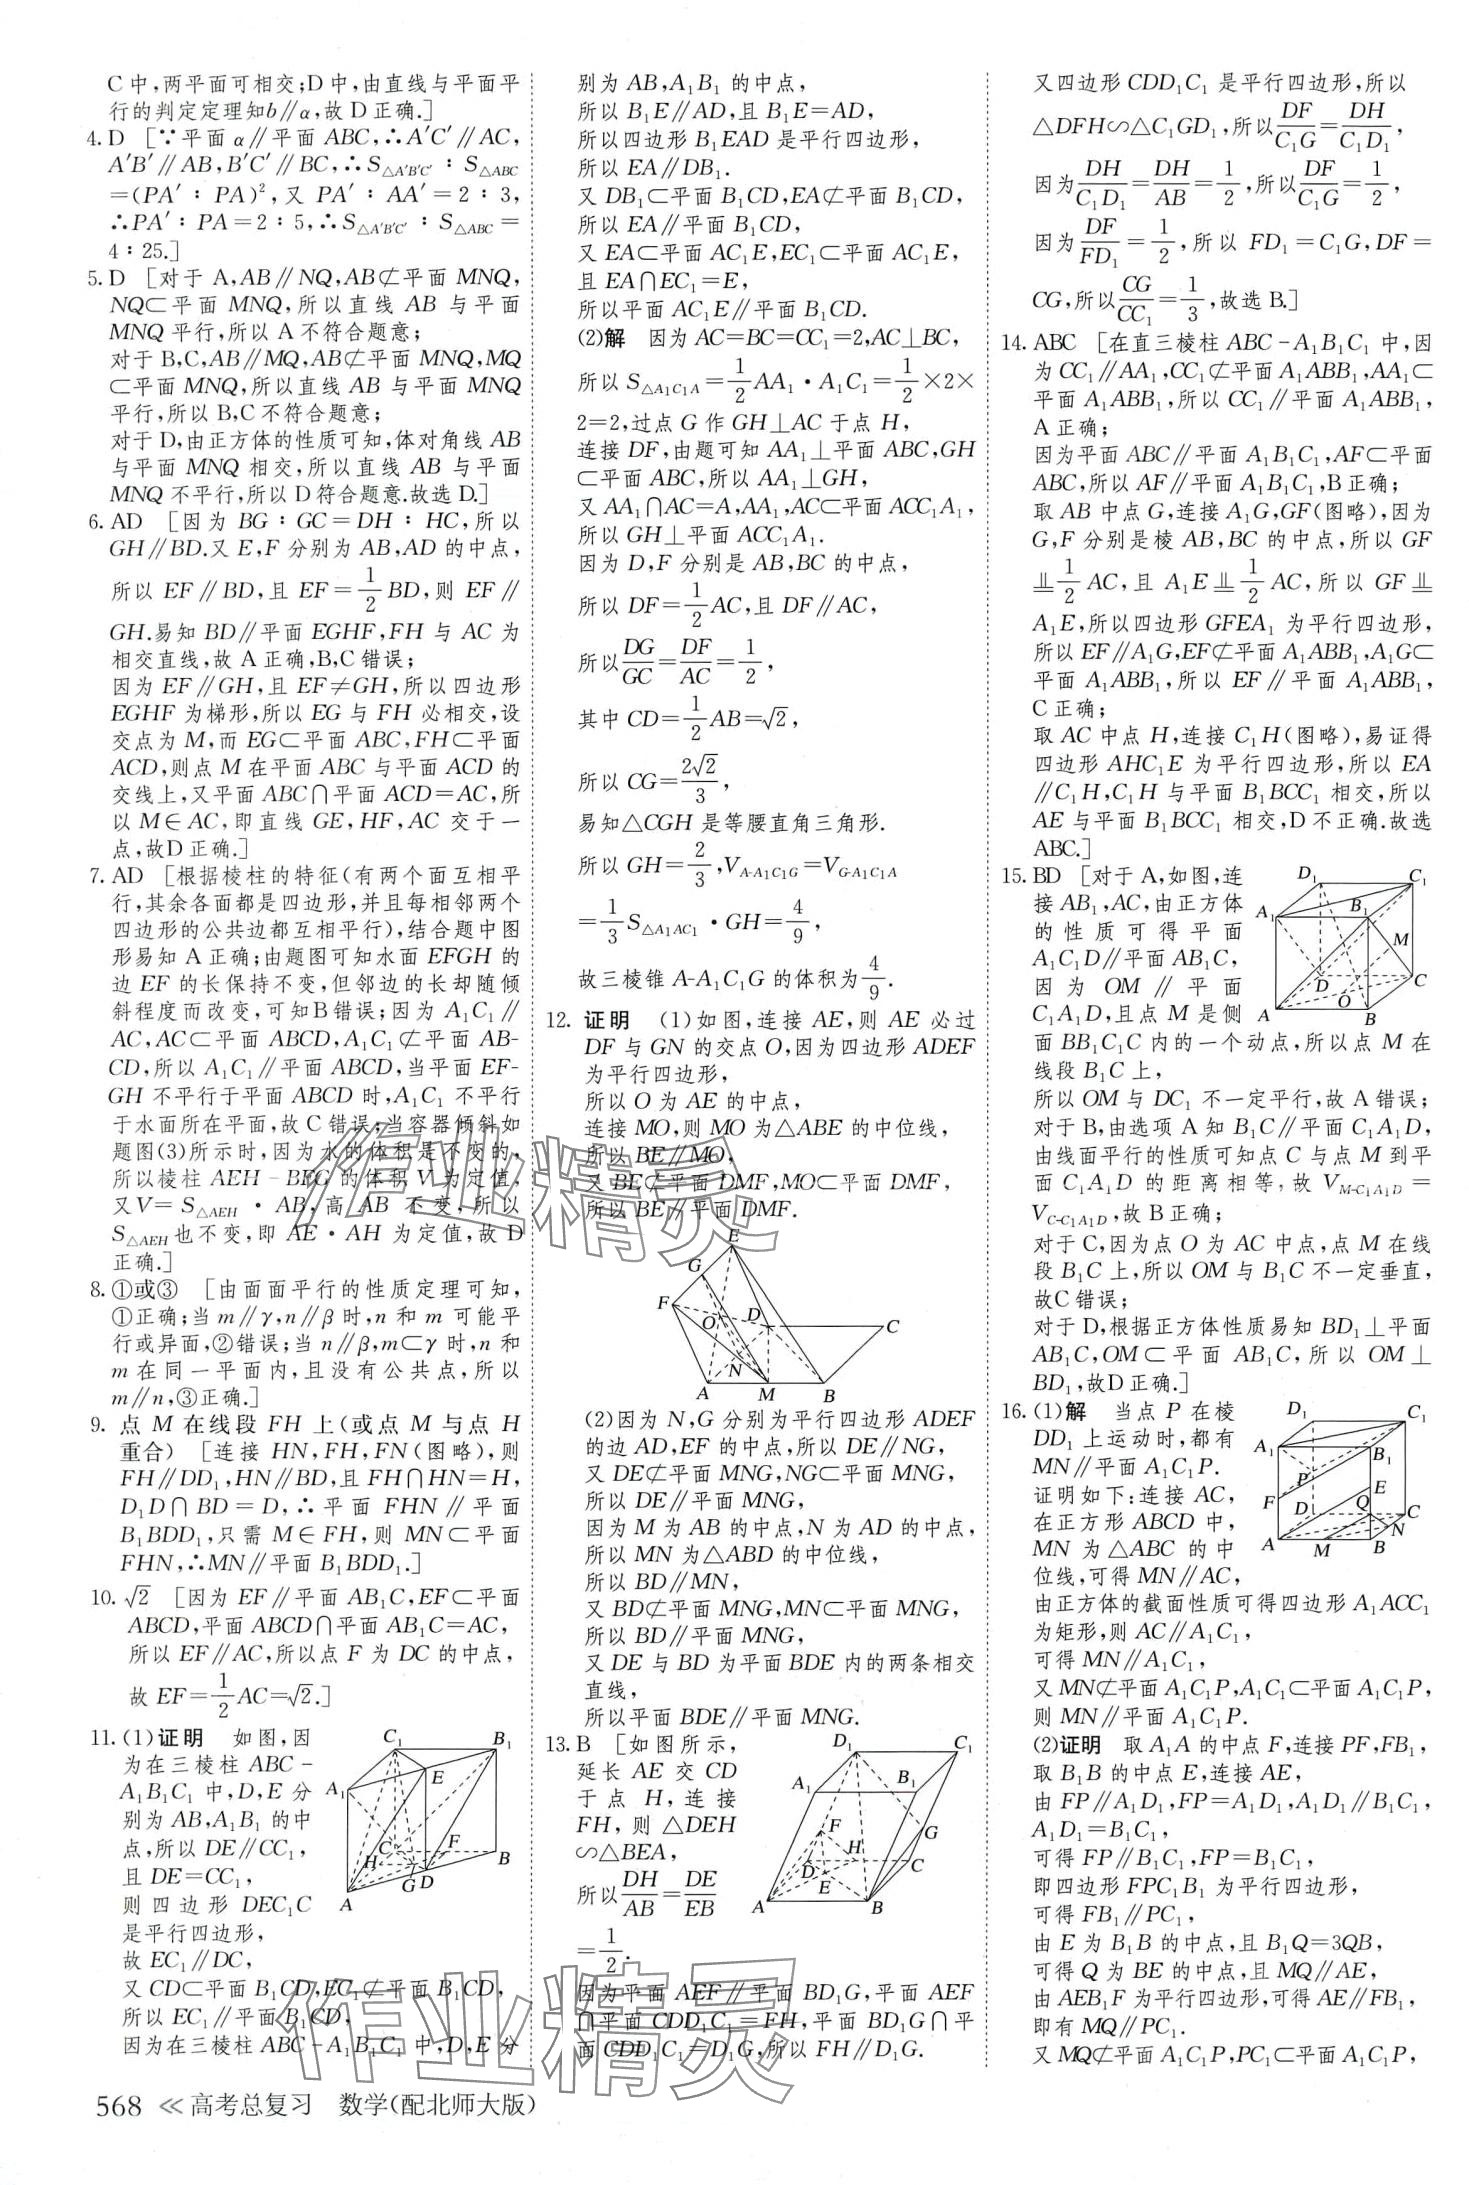 C中,两平面可相交;D中,由直线与平面平
行的判定定理知b∥α,故D正确.]
4. D [∵平面α∥平面ABC,∴A′C′∥AC,
A′B′∥AB,B′C′∥BC,∴S△A′B′C′∶S△ABC
=(PA′∶PA)²,又PA′∶AA′=2∶3,
∴PA′∶PA=2∶5,∴S△A′B′C′∶S△ABC=
4∶25.]
5. D [对于A,AB∥NQ,AB⊄平面MNQ,
NQ⊂平面MNQ,所以直线AB与平面
MNQ平行,所以A不符合题意;
对于B,C,AB∥MQ,AB⊄平面MNQ,MQ
⊂平面MNQ,所以直线AB与平面MNQ
平行,所以B,C不符合题意;
对于D,由正方体的性质可知,体对角线AB
与平面MNQ相交,所以直线AB与平面
MNQ不平行,所以D符合题意.故选D.]
6. AD [因为BG∶GC=DH∶HC,所以
GH∥BD.又E,F分别为AB,AD的中点,
所以EF∥BD,且EF=1/2BD,则EF∥
GH.易知BD∥平面EGHF,FH与AC为
相交直线,故A正确,B,C错误;
因为EF∥GH,且EF≠GH,所以四边形
EGHF为梯形,所以EG与FH必相交,设
交点为M,而EG⊂平面ABC,FH⊂平面
ACD,则点M在平面ABC与平面ACD的
交线上,又平面ABC∩平面ACD=AC,所
以M∈AC,即直线GE,HF,AC交于一
点,故D正确.]
7. AD [根据棱柱的特征(有两个面互相平
行,其余各面都是四边形,并且每相邻两个
四边形的公共边都互相平行),结合题中图
形易知A正确;由题图可知水面EFGH的
边EF的长保持不变,但邻边的长却随倾
斜程度而改变,可知B错误;因为A₁C₁∥
AC,AC⊂平面ABCD,A₁C₁⊄平面AB-
CD,所以A₁C₁∥平面ABCD,当平面EF-
GH不平行于平面ABCD时,A₁C₁不平行
于水面所在平面,故C错误;当容器倾斜如
题图(3)所示时,因为水的体积是不变的,
所以棱柱AEH-BFG的体积V为定值,
又V=S△AEH·AB,高AB不变,所以
S△AEH也不变,即AE·AH为定值,故D
正确.]
8. ①或③ [由面面平行的性质定理可知,
①正确;当m∥γ,n∥β时,n和m可能平
行或异面,②错误;当n∥β,m⊂γ时,n和
m在同一平面内,且没有公共点,所以
m∥n,③正确.]
9. 点M在线段FH上(或点M与点H
重合) [连接HN,FH,FN(图略),则
FH∥DD₁,HN∥BD,且FH∩HN=H,
D₁D∩BD=D,∴平面FHN∥平面
B₁BDD₁,只需M∈FH,则MN⊂平面
FHN,∴MN∥平面B₁BDD₁.]
10. √2 [因为EF∥平面AB₁C,EF⊂平面
ABCD,平面ABCD∩平面AB₁C=AC,
所以EF∥AC,所以点F为DC的中点,
故EF=1/2AC=√2.]
11. (1)证明 如图,因
为在三棱柱ABC-
A₁B₁C₁中,D,E分
别为AB,A₁B₁的中
点,所以DE∥CC₁,
且DE=CC₁,
则四边形DEC₁C
是平行四边形,
故EC₁∥DC,
又CD⊂平面B₁CD,EC₁⊄平面B₁CD,
所以EC₁∥平面B₁CD,
因为在三棱柱ABC-A₁B₁C₁中,D,E分
C₁ B₁ E A₁ F C B H G D A
别为AB,A₁B₁的中点,
所以B₁E∥AD,且B₁E=AD,
所以四边形B₁EAD是平行四边形,
所以EA∥DB₁.
又DB₁⊂平面B₁CD,EA⊄平面B₁CD,
所以EA∥平面B₁CD,
又EA⊂平面AC₁E,EC₁⊂平面AC₁E,
且EA∩EC₁=E,
所以平面AC₁E∥平面B₁CD.
(2)解 因为AC=BC=CC₁=2,AC⊥BC,
所以S△A₁C₁A=1/2AA₁·A₁C₁=1/2×2×
2=2,过点G作GH⊥AC于点H,
连接DF,由题可知AA₁⊥平面ABC,GH
⊂平面ABC,所以AA₁⊥GH,
又AA₁∩AC=A,AA₁,AC⊂平面ACC₁A₁,
所以GH⊥平面ACC₁A₁.
因为D,F分别是AB,BC的中点,
所以DF=1/2AC,且DF∥AC,
所以DG/GC=DF/AC=1/2,
其中CD=1/2AB=√2,
所以CG=2√2/3,
易知△CGH是等腰直角三角形.
所以GH=2/3,V_A-A₁C₁G=V_G-A₁C₁A
=1/3S△A₁AC₁·GH=4/9,
故三棱锥A-A₁C₁G的体积为4/9.
12. 证明 (1)如图,连接AE,则AE必过
DF与GN的交点O,因为四边形ADEF
为平行四边形,
所以O为AE的中点,
连接MO,则MO为△ABE的中位线,
所以BE∥MO,
又BE⊄平面DMF,MO⊂平面DMF,
所以BE∥平面DMF.
E G F O D C N A M B
(2)因为N,G分别为平行四边形ADEF
的边AD,EF的中点,所以DE∥NG,
又DE⊄平面MNG,NG⊂平面MNG,
所以DE∥平面MNG,
因为M为AB的中点,N为AD的中点,
所以MN为△ABD的中位线,
所以BD∥MN,
又BD⊄平面MNG,MN⊂平面MNG,
所以BD∥平面MNG,
又DE与BD为平面BDE内的两条相交
直线,
所以平面BDE∥平面MNG.
13. B [如图所示,
延长AE交CD
于点H,连接
FH,则△DEH
∽△BEA,
所以DH/AB=DE/EB
=1/2.
D₁ C₁ A₁ B₁ F G H D C E A B
因为平面AEF∥平面BD₁G,平面AEF
∩平面CDD₁C₁=FH,平面BD₁G∩平
面CDD₁C₁=D₁G,所以FH∥D₁G.
又四边形CDD₁C₁是平行四边形,所以
△DFH∽△C₁GD₁,所以DF/C₁G=DH/C₁D₁,
因为DH/C₁D₁=DH/AB=1/2,所以DF/C₁G=1/2,
因为DF/FD₁=1/2,所以FD₁=C₁G,DF=
CG,所以CG/CC₁=1/3,故选B.]
14. ABC [在直三棱柱ABC-A₁B₁C₁中,因
为CC₁∥AA₁,CC₁⊄平面A₁ABB₁,AA₁⊂
平面A₁ABB₁,所以CC₁∥平面A₁ABB₁,
A正确;
因为平面ABC∥平面A₁B₁C₁,AF⊂平面
ABC,所以AF∥平面A₁B₁C₁,B正确;
取AB中点G,连接A₁G,GF(图略),因为
G,F分别是棱AB,BC的中点,所以GF
⫫1/2AC,且A₁E⫫1/2AC,所以GF⫫
A₁E,所以四边形GFEA₁为平行四边形,
所以EF∥A₁G,EF⊄平面A₁ABB₁,A₁G⊂
平面A₁ABB₁,所以EF∥平面A₁ABB₁,
C正确;
取AC中点H,连接C₁H(图略),易证得
四边形AHC₁E为平行四边形,所以EA
∥C₁H,C₁H与平面B₁BCC₁相交,所以
AE与平面B₁BCC₁相交,D不正确.故选
ABC.]
15. BD [对于A,如图,连
接AB₁,AC,由正方体
的性质可得平面
A₁C₁D∥平面AB₁C,
因为OM∥平面
C₁A₁D,且点M是侧
D₁ C₁ A₁ B₁ M D O C A B
面BB₁C₁C内的一个动点,所以点M在
线段B₁C上,
所以OM与DC₁不一定平行,故A错误;
对于B,由选项A知B₁C∥平面C₁A₁D,
由线面平行的性质可知点C与点M到平
面C₁A₁D的距离相等,故V_M-C₁A₁D=
V_C-C₁A₁D,故B正确;
对于C,因为点O为AC中点,点M在线
段B₁C上,所以OM与B₁C不一定垂直,
故C错误;
对于D,根据正方体性质易知BD₁⊥平面
AB₁C,OM⊂平面AB₁C,所以OM⊥
BD₁,故D正确.]
16. (1)解 当点P在棱
DD₁上运动时,都有
MN∥平面A₁C₁P.
证明如下:连接AC,
在正方形ABCD中,
MN为△ABC的中
位线,可得MN∥AC,
D₁ C₁ A₁ B₁ P E F D Q C N A M B
由正方体的截面性质可得四边形A₁ACC₁
为矩形,则AC∥A₁C₁,
可得MN∥A₁C₁,
又MN⊄平面A₁C₁P,A₁C₁⊂平面A₁C₁P,
则MN∥平面A₁C₁P.
(2)证明 取A₁A的中点F,连接PF,FB₁,
取B₁B的中点E,连接AE,
由FP∥A₁D₁,FP=A₁D₁,A₁D₁∥B₁C₁,
A₁D₁=B₁C₁,
可得FP∥B₁C₁,FP=B₁C₁,
即四边形FPC₁B₁为平行四边形,
可得FB₁∥PC₁,
由E为B₁B的中点,且B₁Q=3QB,
可得Q为BE的中点,且MQ∥AE,
由AEB₁F为平行四边形,可得AE∥FB₁,
即有MQ∥PC₁.
又MQ⊄平面A₁C₁P,PC₁⊂平面A₁C₁P,
568 ≪ 高考总复习 数学(配北师大版)
作业精灵
作业精灵